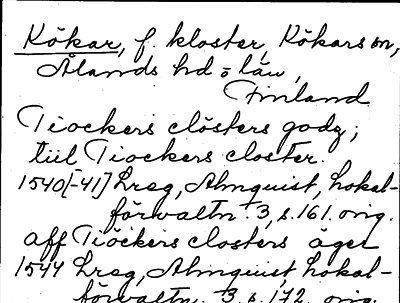 Kökar, f. kloster, Kökars sn,
Ålands hd o län,
Finland
Tiockers clösters godz;
tiil Tiockers closter.
1540[-41] Lrsg, Almquist, Lokal-
förvaltn. 3, s. 161. orig.
aff Tiöckers closters äger
1544 Lrsg, Almquist Lokal-
förvaltn. 3, s. 172. orig.